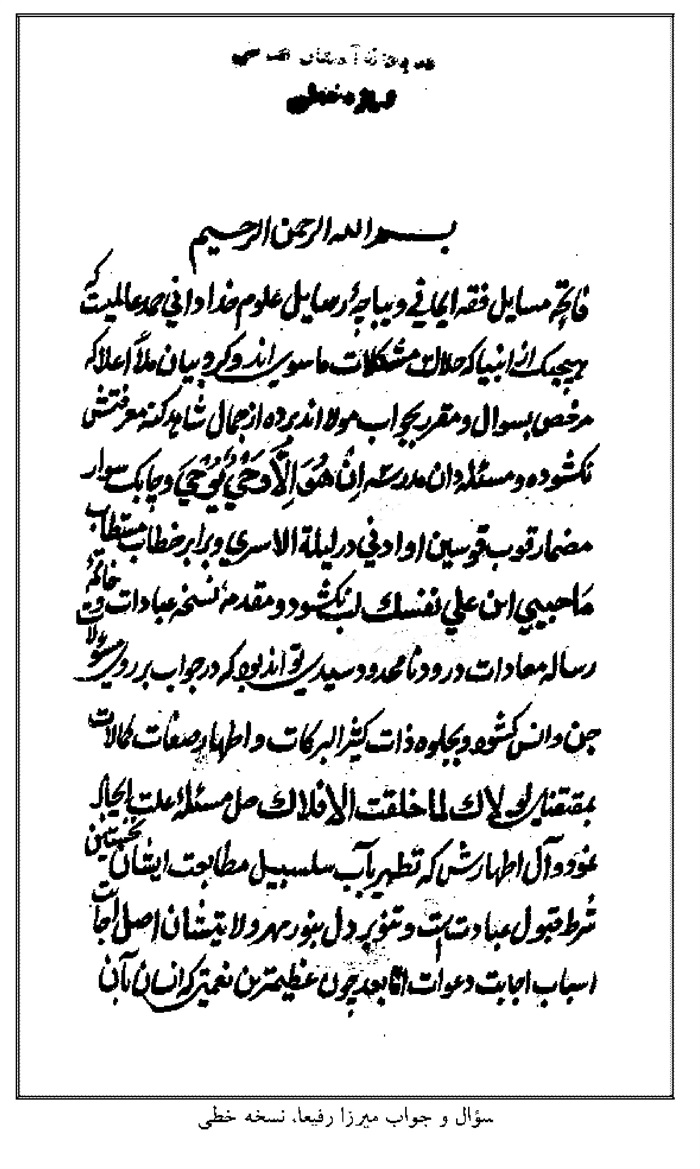 بسم الله الرحمن الرحيم
فاتحهٔ مسایل فقه ایمانی و دیباچهٔ رسایل علوم خدادانی حمد عالمیست که
هیچیک از انبیا که حلال مشکلات ماسوی اند و کروبیان ملأ اعلا که
مرخص بسوال و مقرر بجواب مولااند پرده از جمال شاهد کنه معرفتش
نکشوده و مسئله دان مدرسه اِنْ هُوَ اِلَّا وَحْيٌ يُوحَي و چابک سوار
مضمار قوب قوسین او ادنی در لیلة الاسری و برابر خطاب مستطاب
ما حبیبی اثن علی نفسک لب نکشود و مقدمهٔ نسخه عبادات و خاتمهٔ
رساله معادات درود نامحدود سیدی تواند بود که در جواب بر روی مسئولات
جن وانس کشوده و بجلوه ذات کثیر البرکات و اظهار صفات کمالات
بمقتضای لولاک لما خلقت الافلاک حل مسئله علت ایجاد
نموده و آل اطهارش که تطهیر بآب سلسبیل مطابعت ایشان نخستین
شرط قبول عبادتست و تنویر دل بنور مهر و ولایتشان اصل
اسباب اجابت دعوات اما بعد چون عظیمترین نعمتی که انسان بآن
سؤال و جواب میرزا رفیعا، نسخه خطی